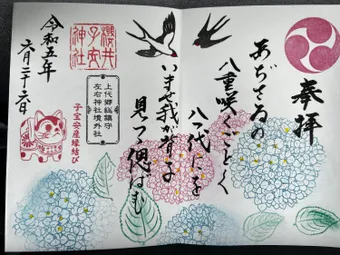 奉拝
あぢさゐの
八重咲くごとく
八つ代にを
いませ我が背子よ
見つつ偲はむ
櫻井
子安
神社
上代郷総鎮守
左右神社境外社
子宝安産縁結び
令和五年
六月二十六日